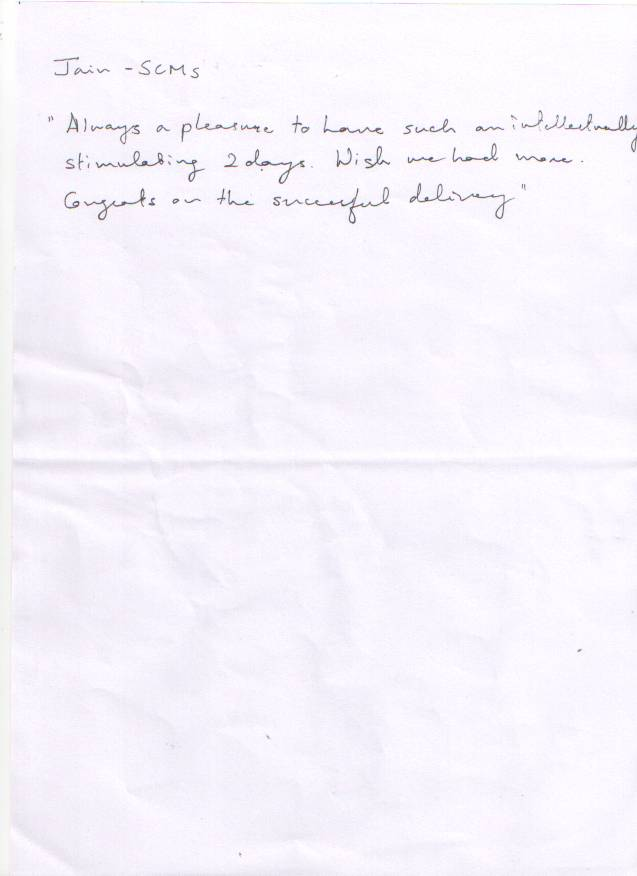 Jain - SCMS
" Always a pleasure to have such an intellectually
stimulating 2 days. Wish we had more.
Congrats on the successful delivery"